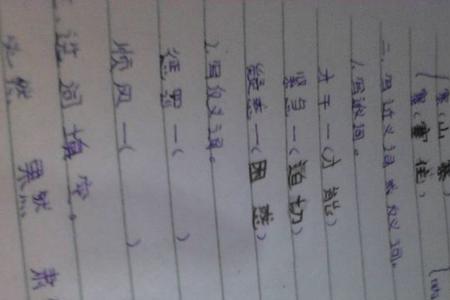 (山寨)
二、写近义词或反义词。
1.写近义词。
才干—(才能)
紧急—(迫切)
疑惑—(困惑)
2.写反义词。
惩罚—( )
顺风—( )
选词填空。
果然